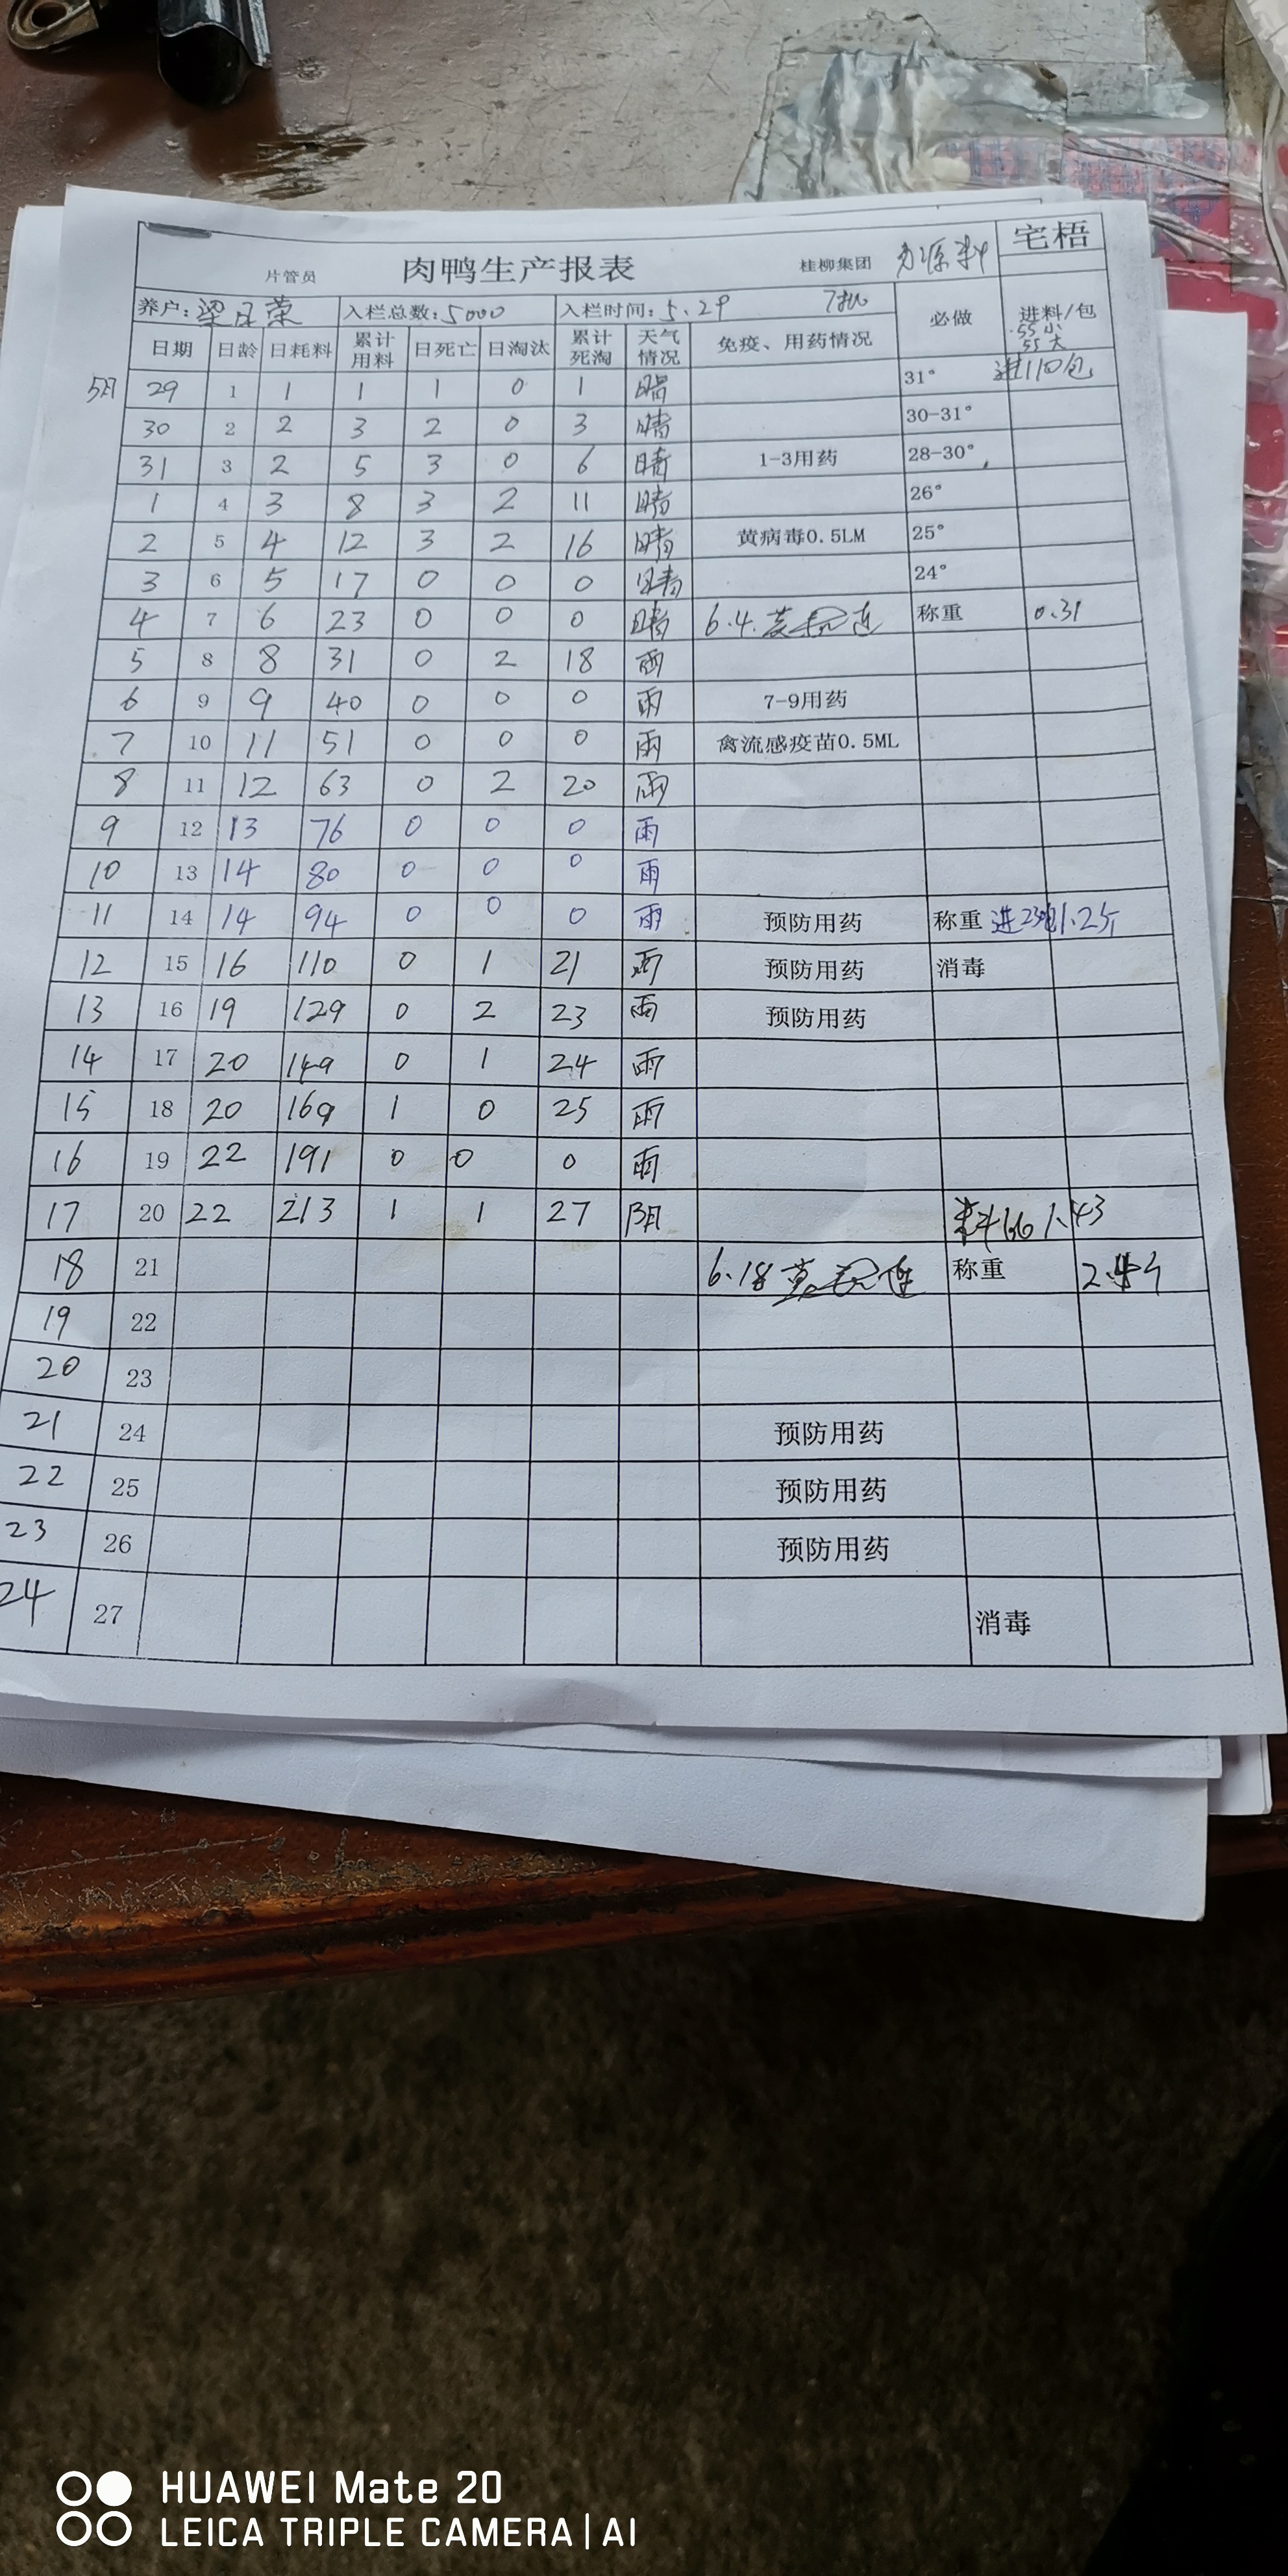 宅梧
片管员 肉鸭生产报表 桂柳集团
养户: 梁日荣 入栏总数: 5000 入栏时间: 5.29 7批 必做 进料/包
55小
55大
日期 日龄 日耗料 累计用料 日死亡 日淘汰 累计死淘 天气情况 免疫、用药情况
5月 29 1 1 1 1 0 1 晴 31° 进110包
30 2 2 3 2 0 3 晴 30-31°
31 3 2 5 3 0 6 晴 1-3用药 28-30°
1 4 3 8 3 2 11 晴 26°
2 5 4 12 3 2 16 晴 黄病毒0.5LM 25°
3 6 5 17 0 0 0 晴 24°
4 7 6 23 0 0 0 晴 6.4. 称重 0.31
5 8 8 31 0 2 18 雨
6 9 9 40 0 0 0 雨 7-9用药
7 10 11 51 0 0 0 雨 禽流感疫苗0.5ML
8 11 12 63 0 2 20 雨
9 12 13 76 0 0 0 雨
10 13 14 80 0 0 0 雨
11 14 14 94 0 0 0 雨 预防用药 称重 进23包 1.2斤
12 15 16 110 0 1 21 雨 预防用药 消毒
13 16 19 129 0 2 23 雨 预防用药
14 17 20 149 0 1 24 雨
15 18 20 169 1 0 25 雨
16 19 22 191 0 0 0 雨
17 20 22 213 1 1 27 阴 1.43
18 21 6.18 称重
19 22
20 23
21 24 预防用药
22 25 预防用药
23 26 预防用药
24 27 消毒
HUAWEI Mate 20
LEICA TRIPLE CAMERA | AI